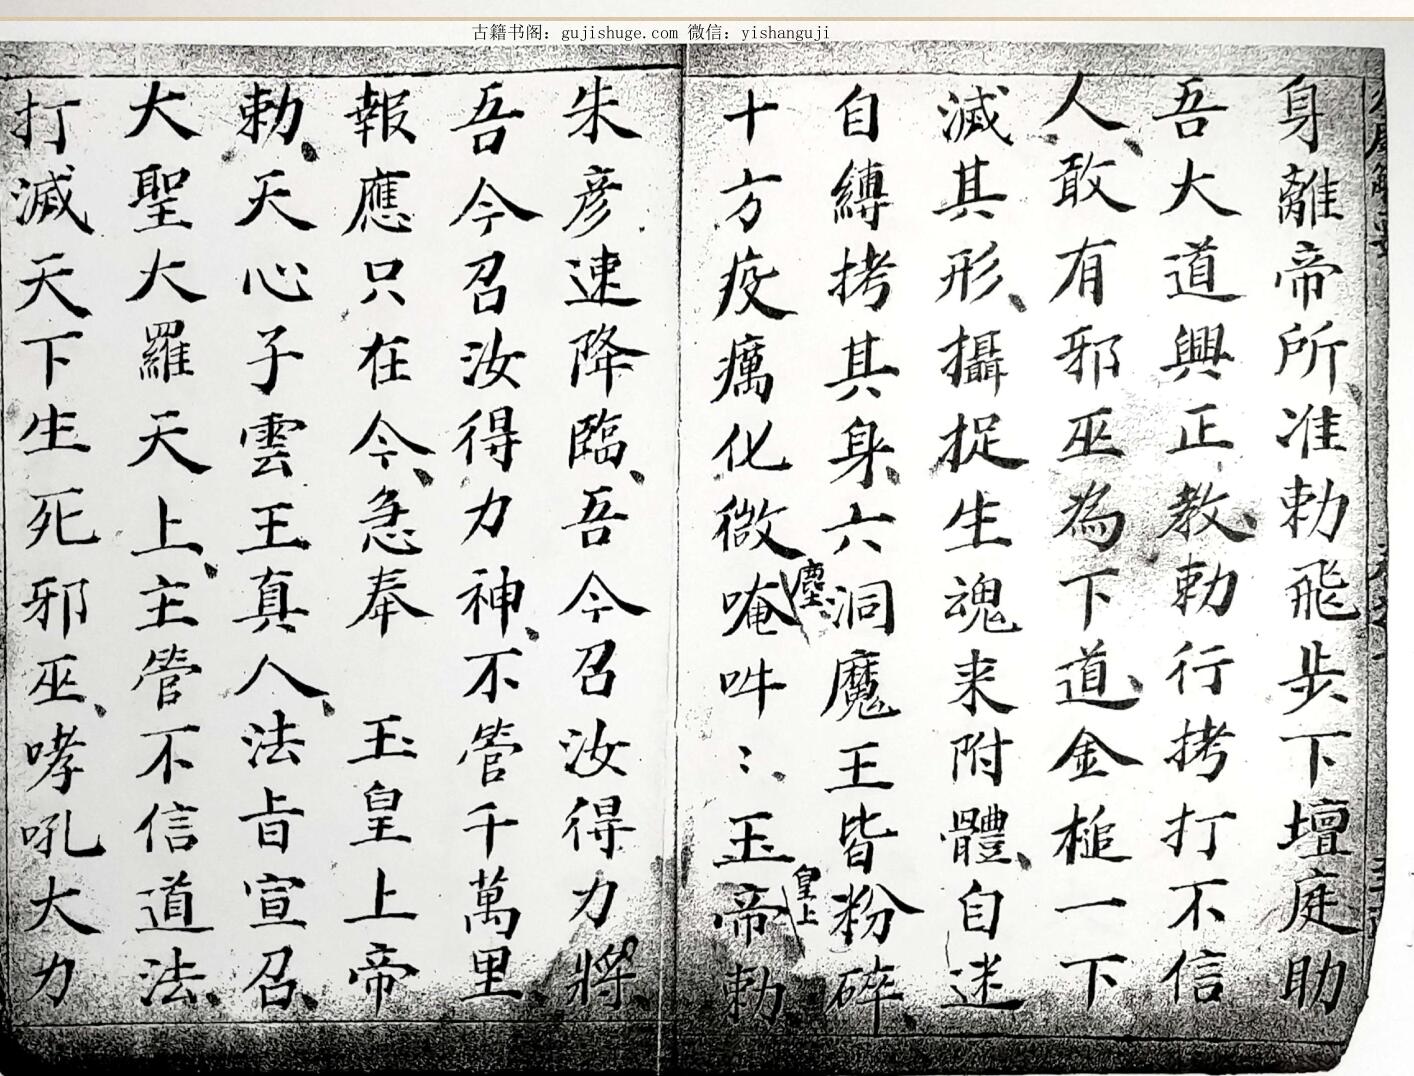 古籍书阁：gujishuge.com 微信：yishanguji
身離帝所、准勅飛步下壇庭助
吾大道興正教、勅行拷打不信
人、敢有邪巫為下道、金槌一下
滅其形、攝捉生魂来附體、自迷
自縛拷其身、六洞魔王皆粉碎、
十方疫癘化微塵、唵吽〻、玉皇上帝勅
朱彦速降臨、吾今召汝得力將、
吾今召汝得力神、不管千萬里
報應只在今、急奉 玉皇上帝
勅、天心子雲王真人、法旨宣召、
大聖大羅天上、主管不信道法、
打滅天下生死邪巫、哮吼大力